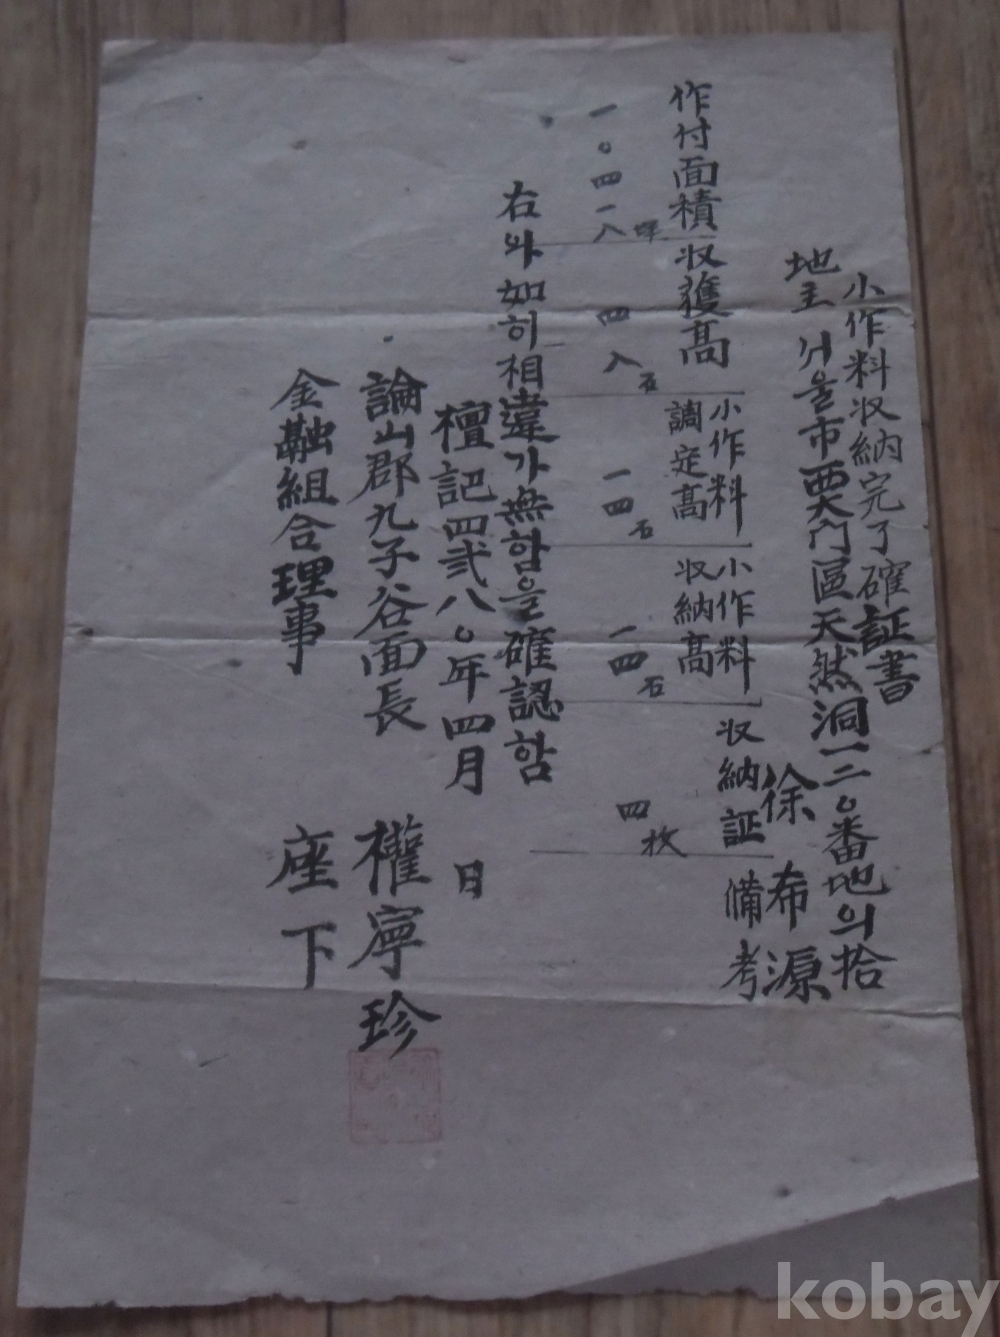 小作料収納完了確証書
地主 서울市西大門區天然洞一二0番地의拾
徐希源
作付面積 収獲高 小作料調定高 小作料収納高 収納証 備考
一0四一八坪 四八石 一四石 一四石 四枚
右와如히相違가無함을確認함
檀記四弐八0年四月 日
論山郡九子谷面長 權寧珍
金融組合理事 座下
kobay